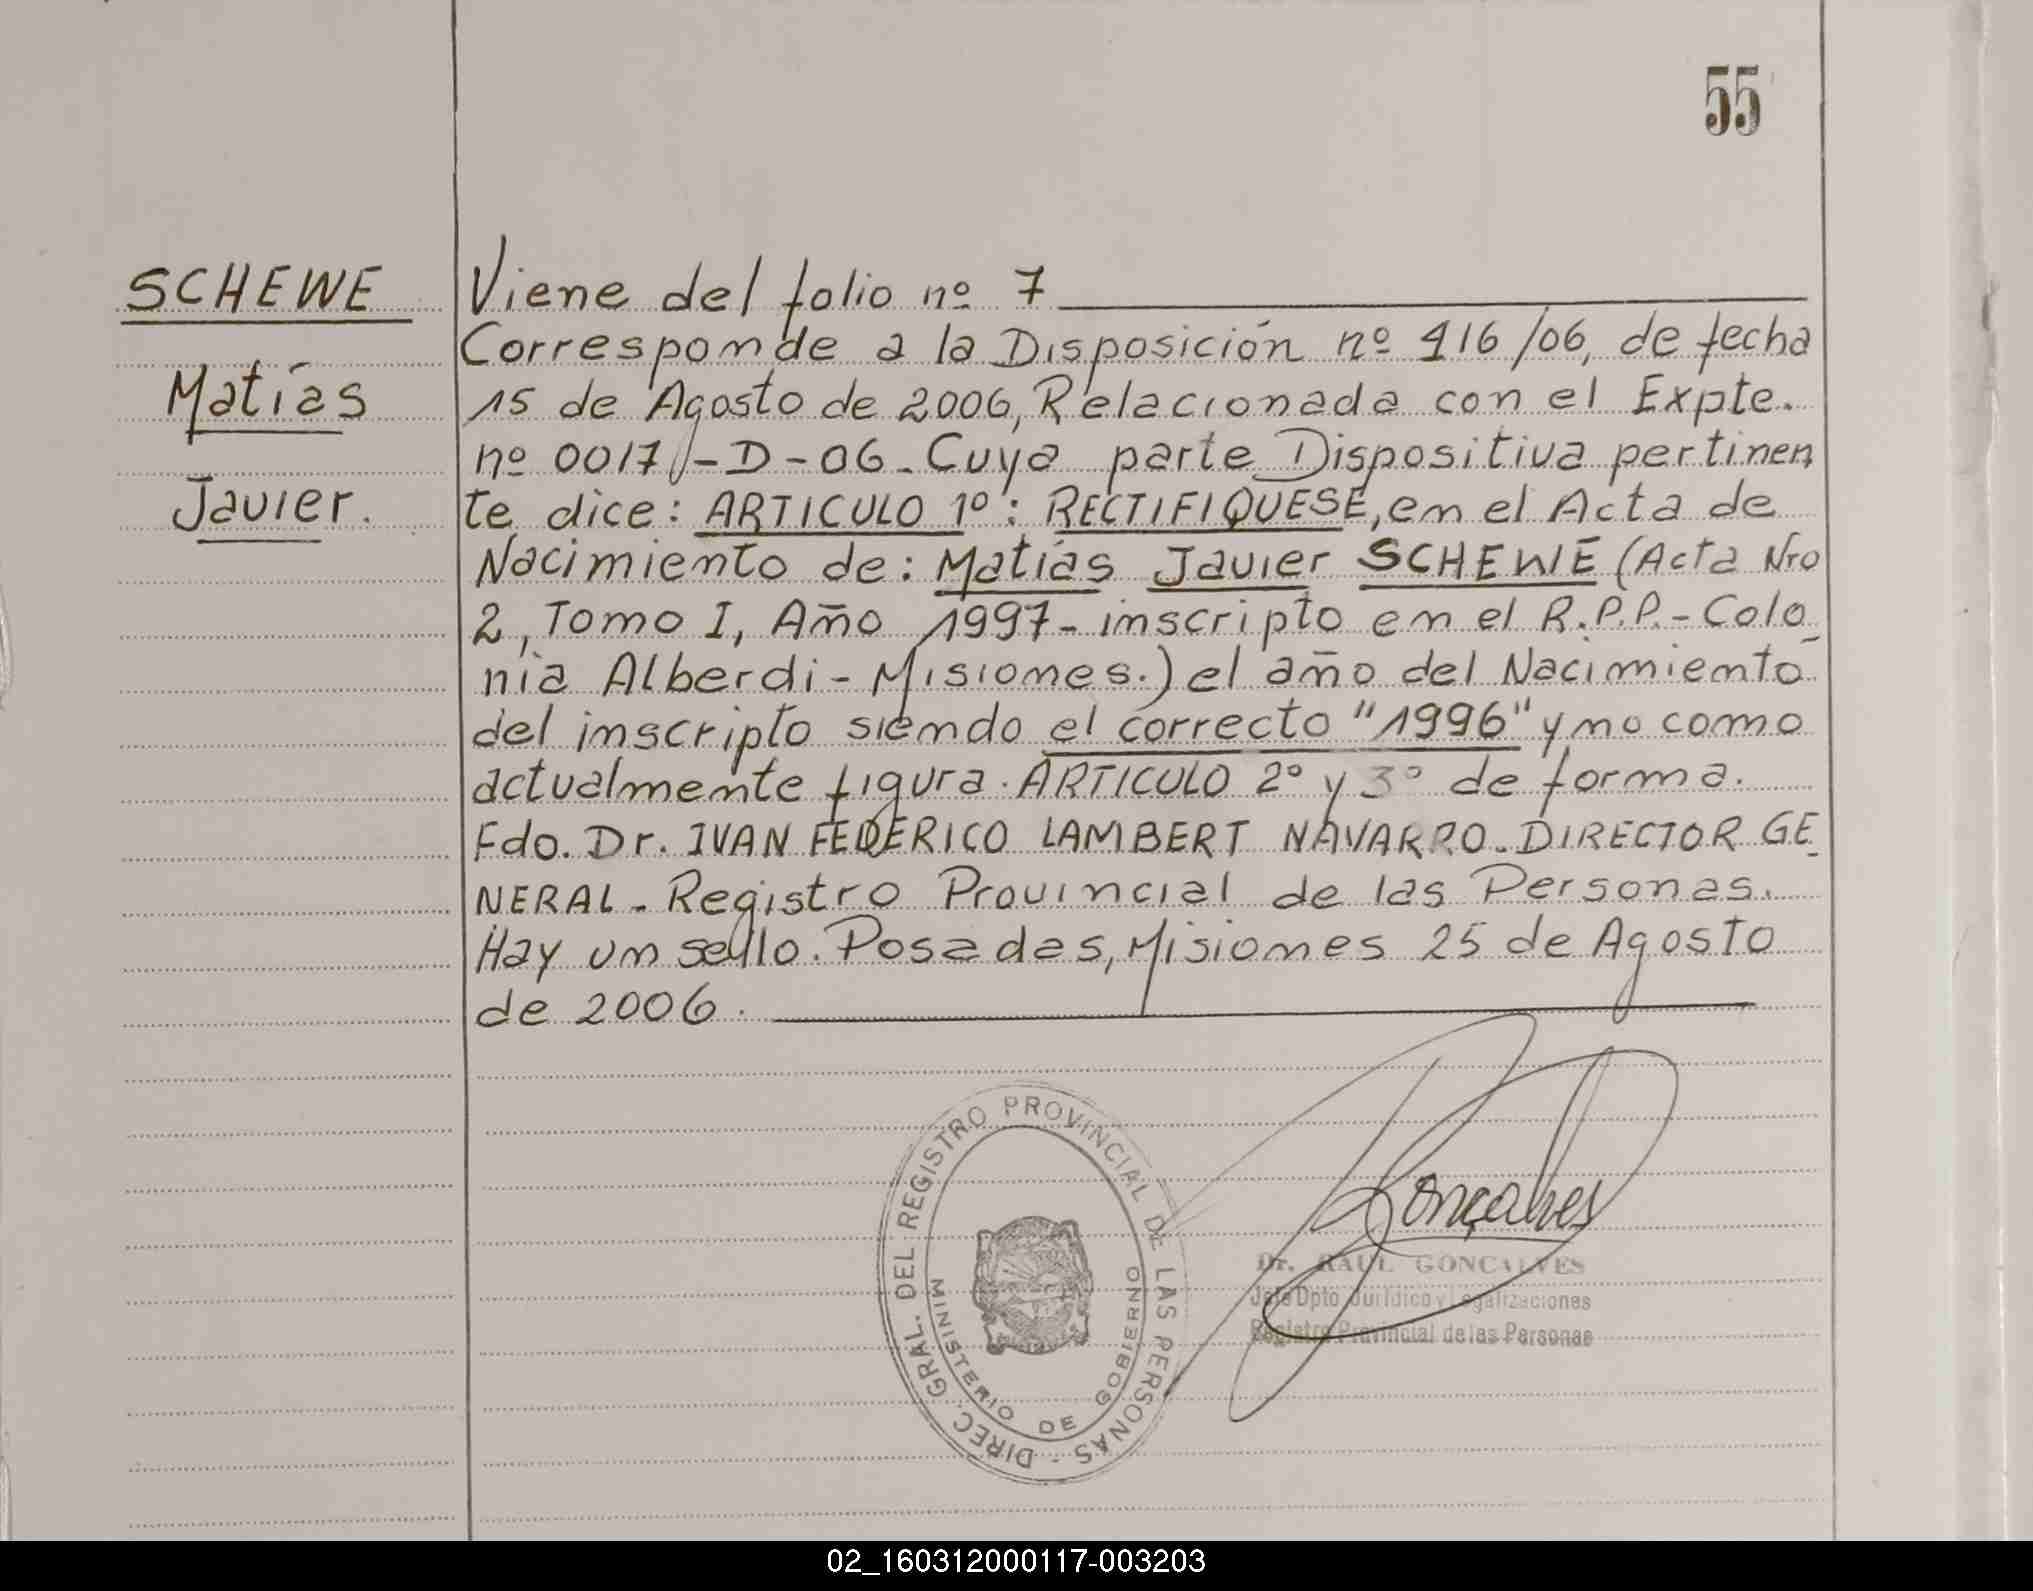 55
SCHEWE
Matías
Javier.
Viene del folio nº 7
Corresponde a la Disposición nº 416/06, de fecha
15 de Agosto de 2006, Relacionada con el Expte.
nº 0017-D-06. Cuya parte Dispositiva pertinen
te dice: ARTICULO 1º: RECTIFIQUESE, en el Acta de
Nacimiento de: Matías Javier SCHEWE (Acta Nro
2, Tomo I, Año 1997- inscripto en el R.P.P.- Colo
nia Alberdi - Misiones.) el año del Nacimiento
del inscripto siendo el correcto "1996" y no como
actualmente figura. ARTICULO 2º y 3º de forma.
Fdo. Dr. IVAN FEDERICO LAMBERT NAVARRO. DIRECTOR GE
NERAL. Registro Provincial de las Personas.
Hay un sello. Posadas, Misiones 25 de Agosto
de 2006.
DIREC. GRAL. DEL REGISTRO PROVINCIAL DE LAS PERSONAS -
MINISTERIO DE GOBIERNO
Gonçalves
Dr. RAUL GONCALVES
Jefe Dpto. Jurídico y Legalizaciones
Registro Provincial de las Personas
02_160312000117-003203